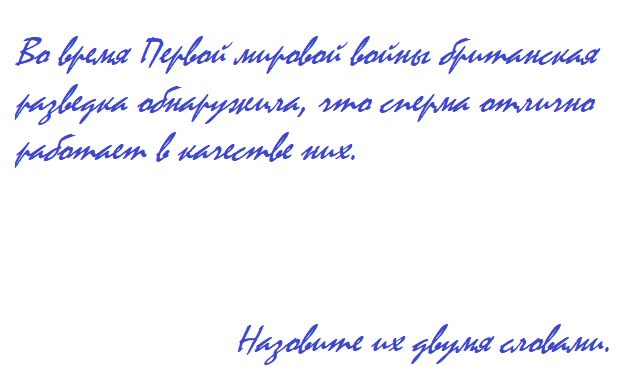 Во время Первой мировой войны британская
разведка обнаружила, что сперма отлично
работает в качестве них.
Назовите их двумя словами.